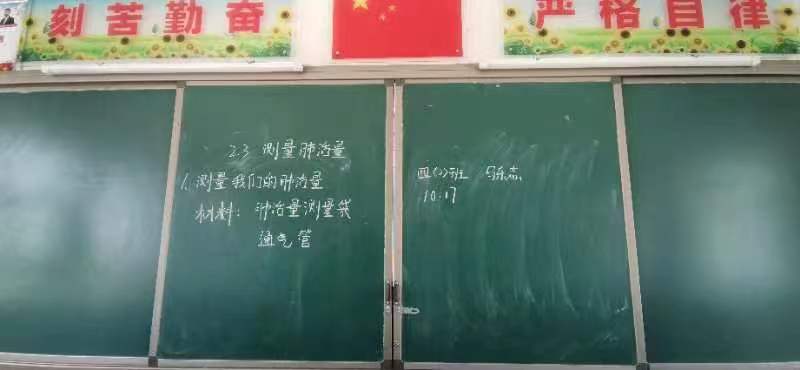 刻苦勤奋
严格自律
2.3 测量肺活量
1、测量我们的肺活量
材料：肺活量测量袋
通气管
四(2)班
10.17